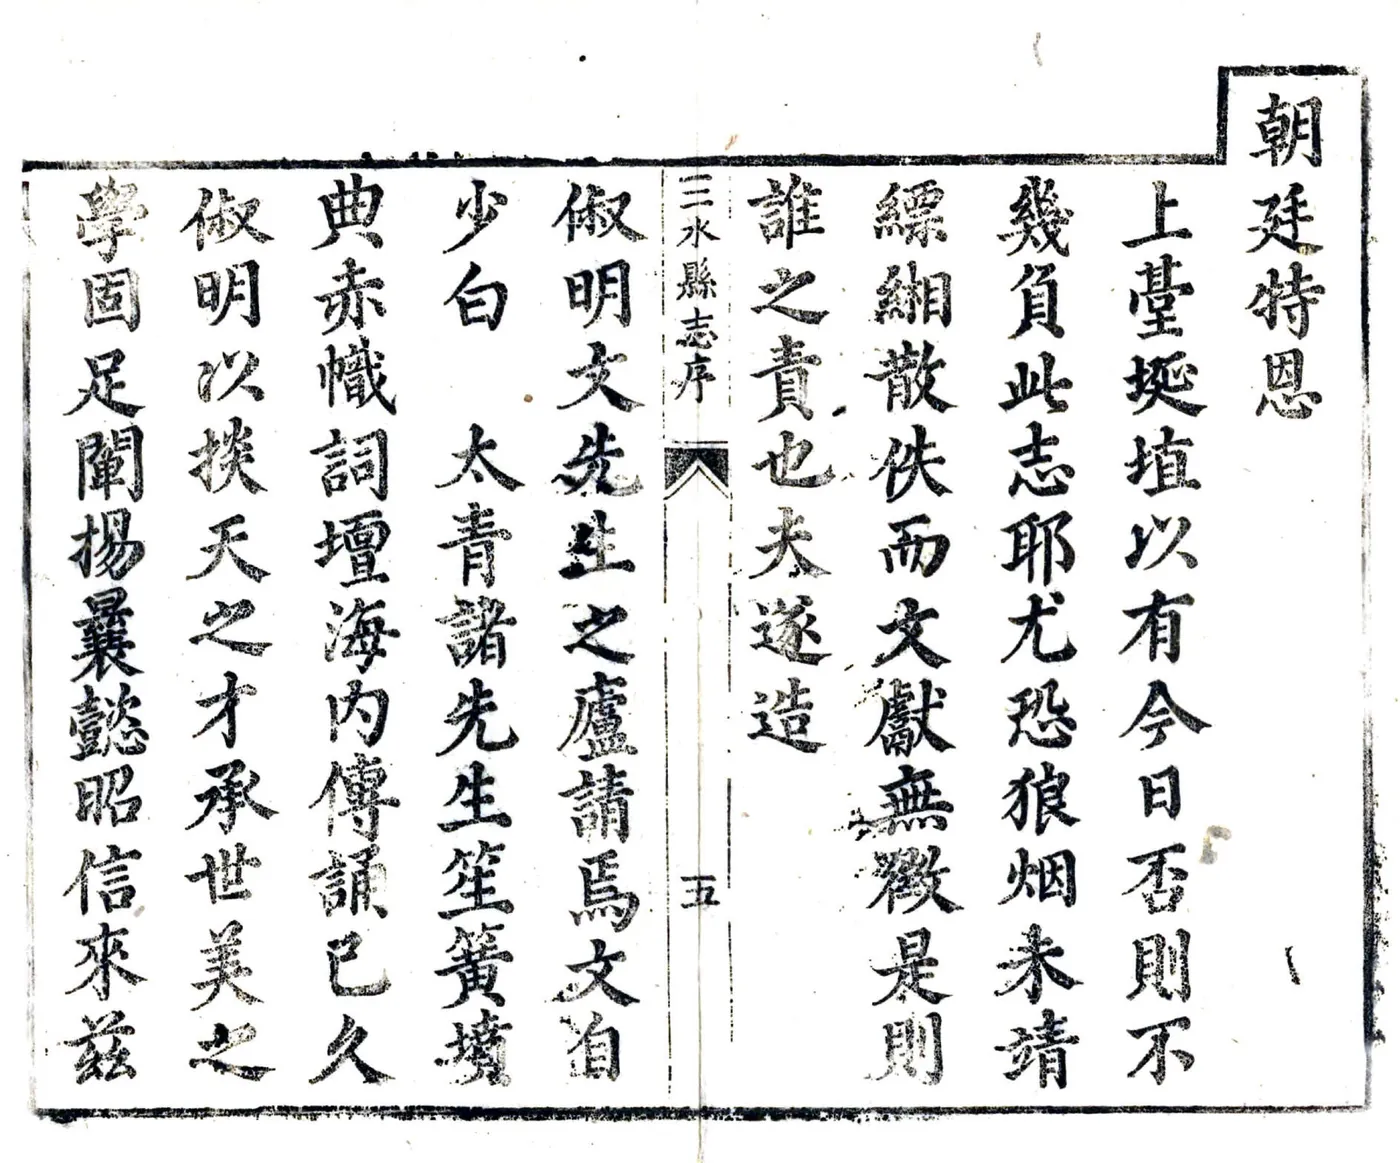 朝廷特恩
上臺埏埴以有今日否則不
幾負此志耶尤恐狼烟未靖
縹緗散佚而文獻無徵是則
誰之責也夫遂造
三水縣志序
五
俶明文先生之廬請焉文自
少白 太青諸先生笙簧墳
典赤幟詞壇海内傳誦已久
俶明以掞天之才承世美之
學固足闡揚曩懿昭信來茲